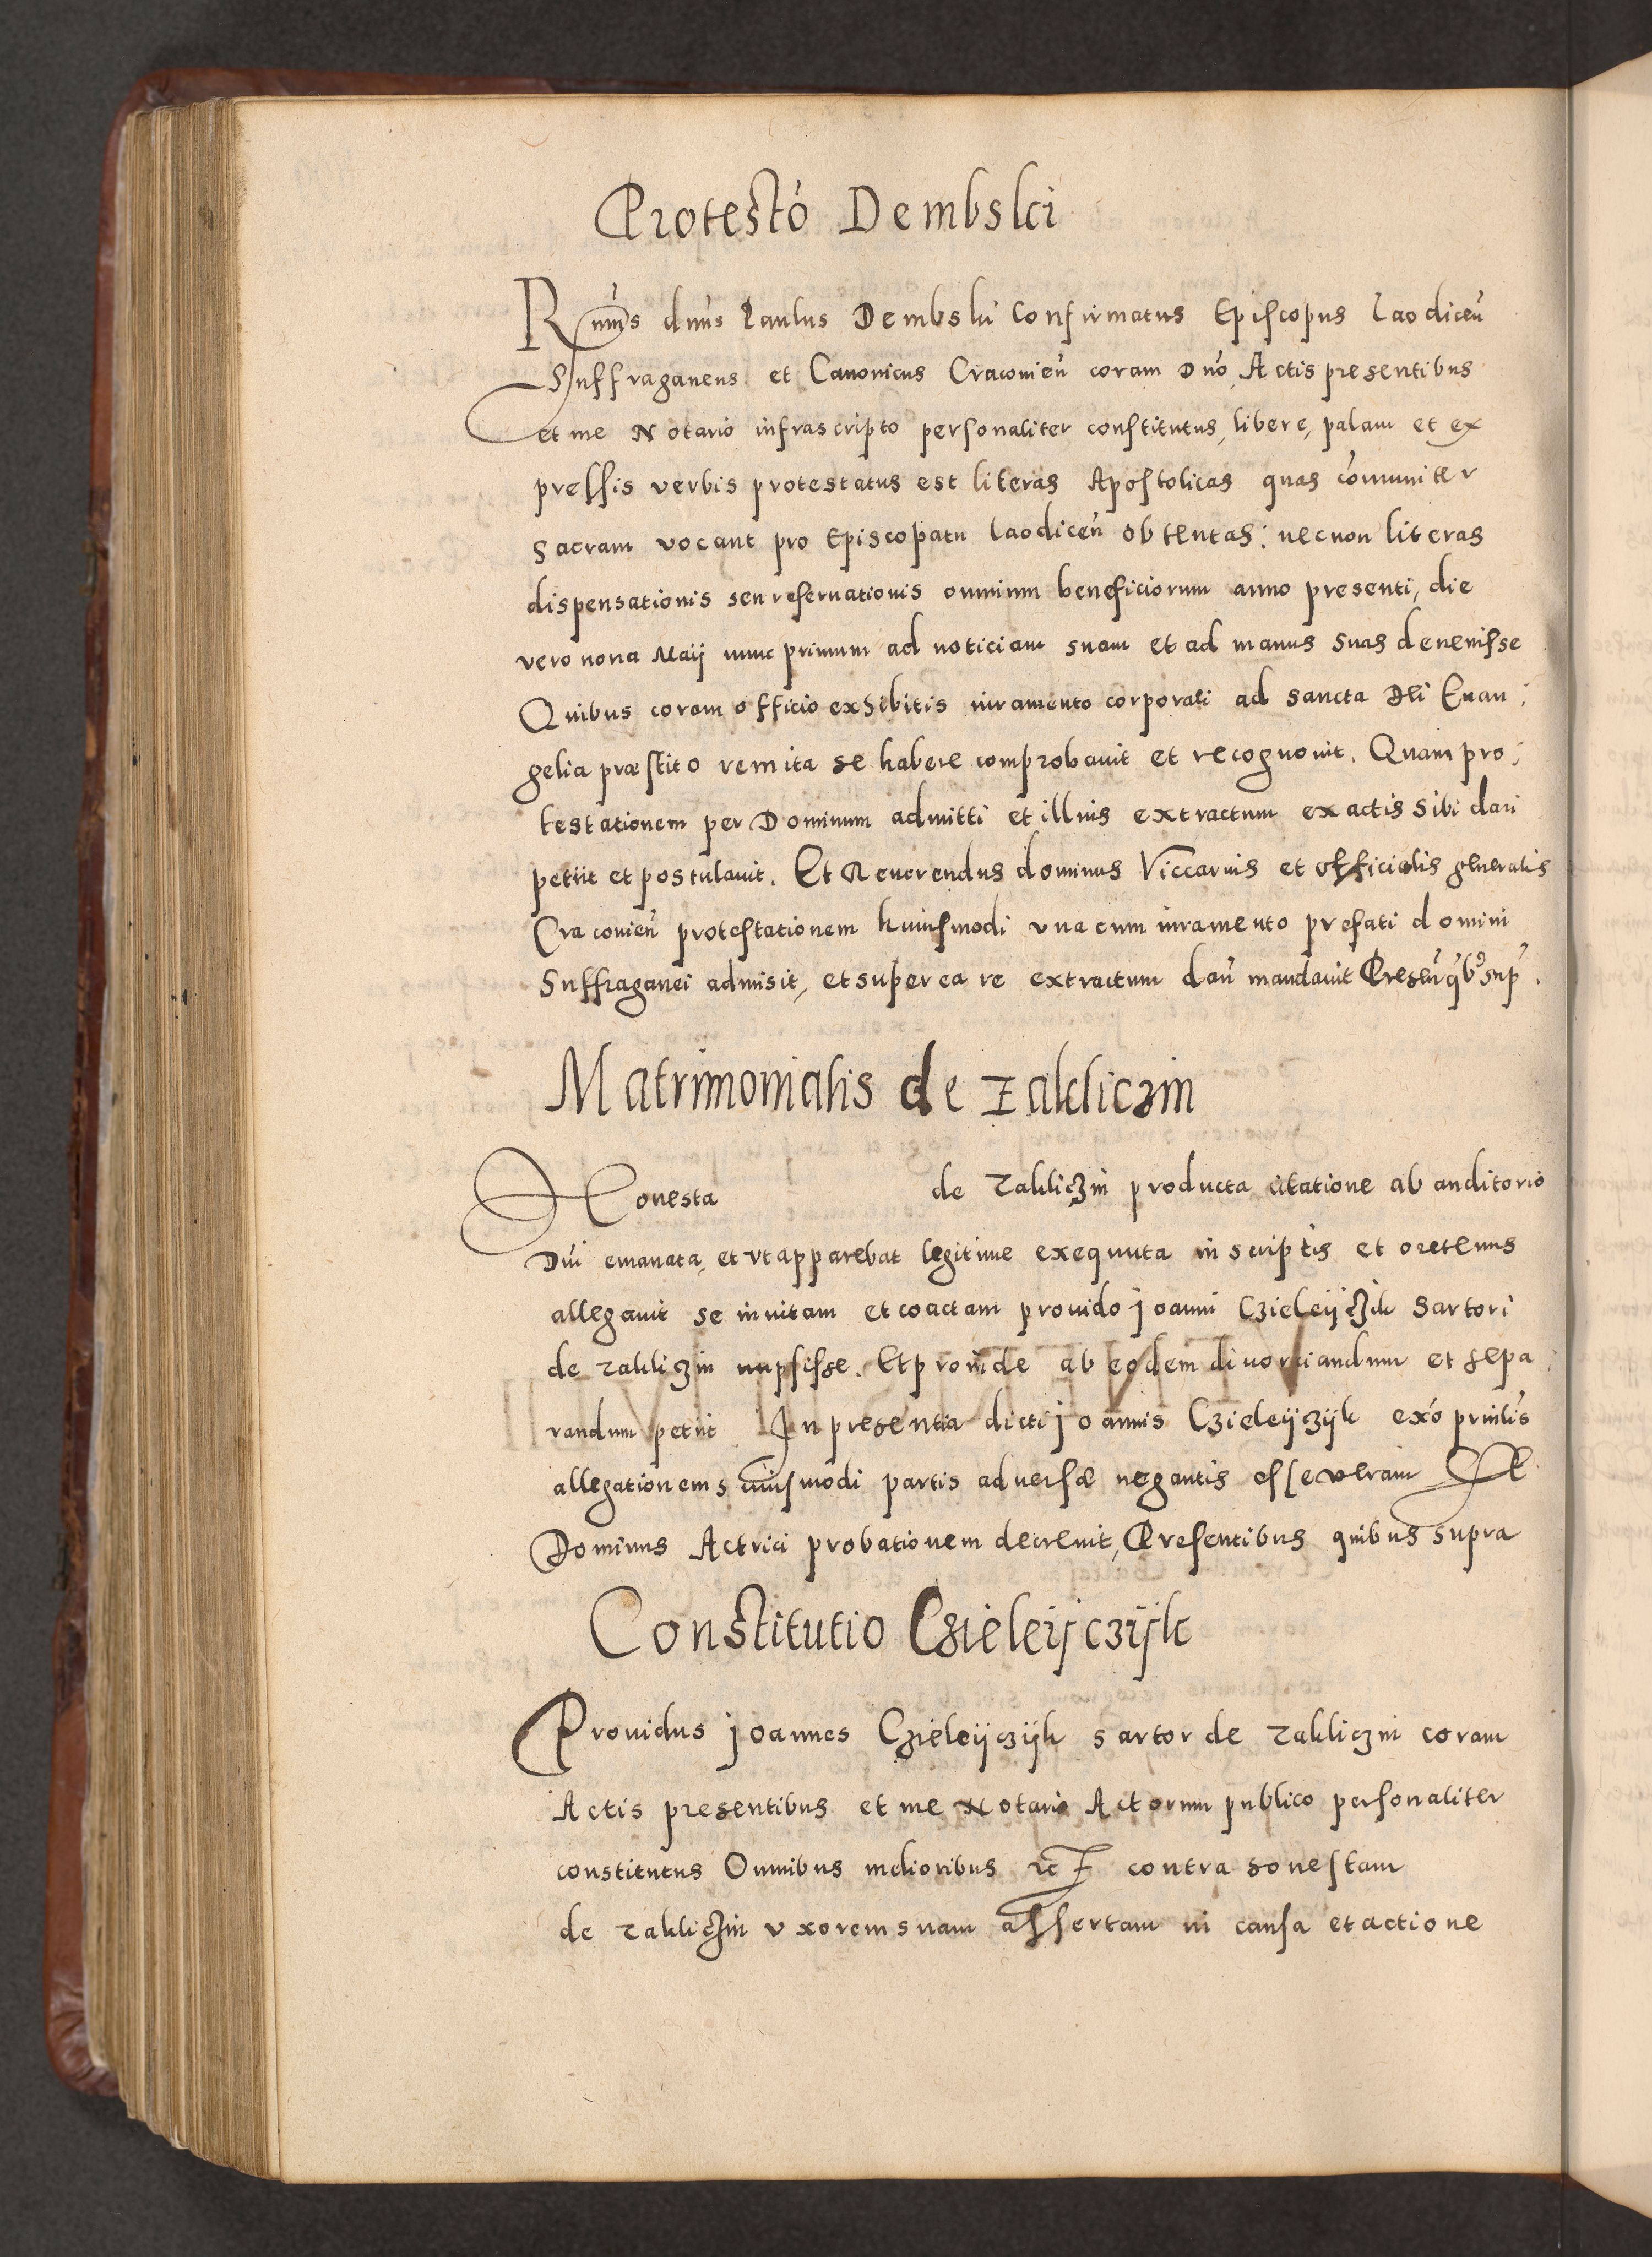 Protestó Dembski
Rnus dnus Paulus Dembski Confirmatus Episcopus Laodiceñ
Suffraganeus et Canonicus Cracovieñ coram Dño, Actis presentibus
et me Notario infrascripto personaliter constitutus, libere, palam et ex
pressis verbis protestatus est literas Apostolicas quas cõmuniter
Sacram vocant pro Episcopatu Laodiceñ obtentas: necnon literas
dispensationis seu reservationis omnium beneficiorum anno presenti, die
vero nona Maij nunc primum ad noticiam suam et ad manus suas devenisse
Quibus coram officio exhibitis iuramento corporali ad sancta Dei Euan:
gelia præstito rem ita se habere comprobavit et recognovit. Quam pro:
testationem per Dominum admitti et illius extractum ex actis sibi dari
petiit et postulavit. Et Reverendus dominus Viccarius et officialis generalis
Cracovieñ protestationem huiusmodi una cum iuramento prefati domini
Suffraganei admisit, et super ea re extractum dari mandavit Preseñ qb9 sup.
Matrimonialis de Zakliczin
Honesta de Zakliczin producta citatione ab auditorio
Dñi emanata, et ut apparebat legitime exequuta in scriptis et oretenus
allegavit se invitam et coactam provido Joanni Czieleijczik Sartori
de Zakliczin nupsisse. Et proinde ab eodem divorciandum et sepa
randum petiit In presentia dicti Joannis Czieleijczijk
allegationem huiusmodi partis adversæ negantis esse veram Et
Dominus Actrici probationem decrevit, Presentibus quibus supra
Constitutio Czieleijczijk
Providus Joannes Czieleijczijk sartor de Zakliczin coram
Actis presentibus et me Notario Actorum publico personaliter
constitutus Omnibus melioribus etc contra honestam
de Zakliczin uxorem suam assertam in causa et actione